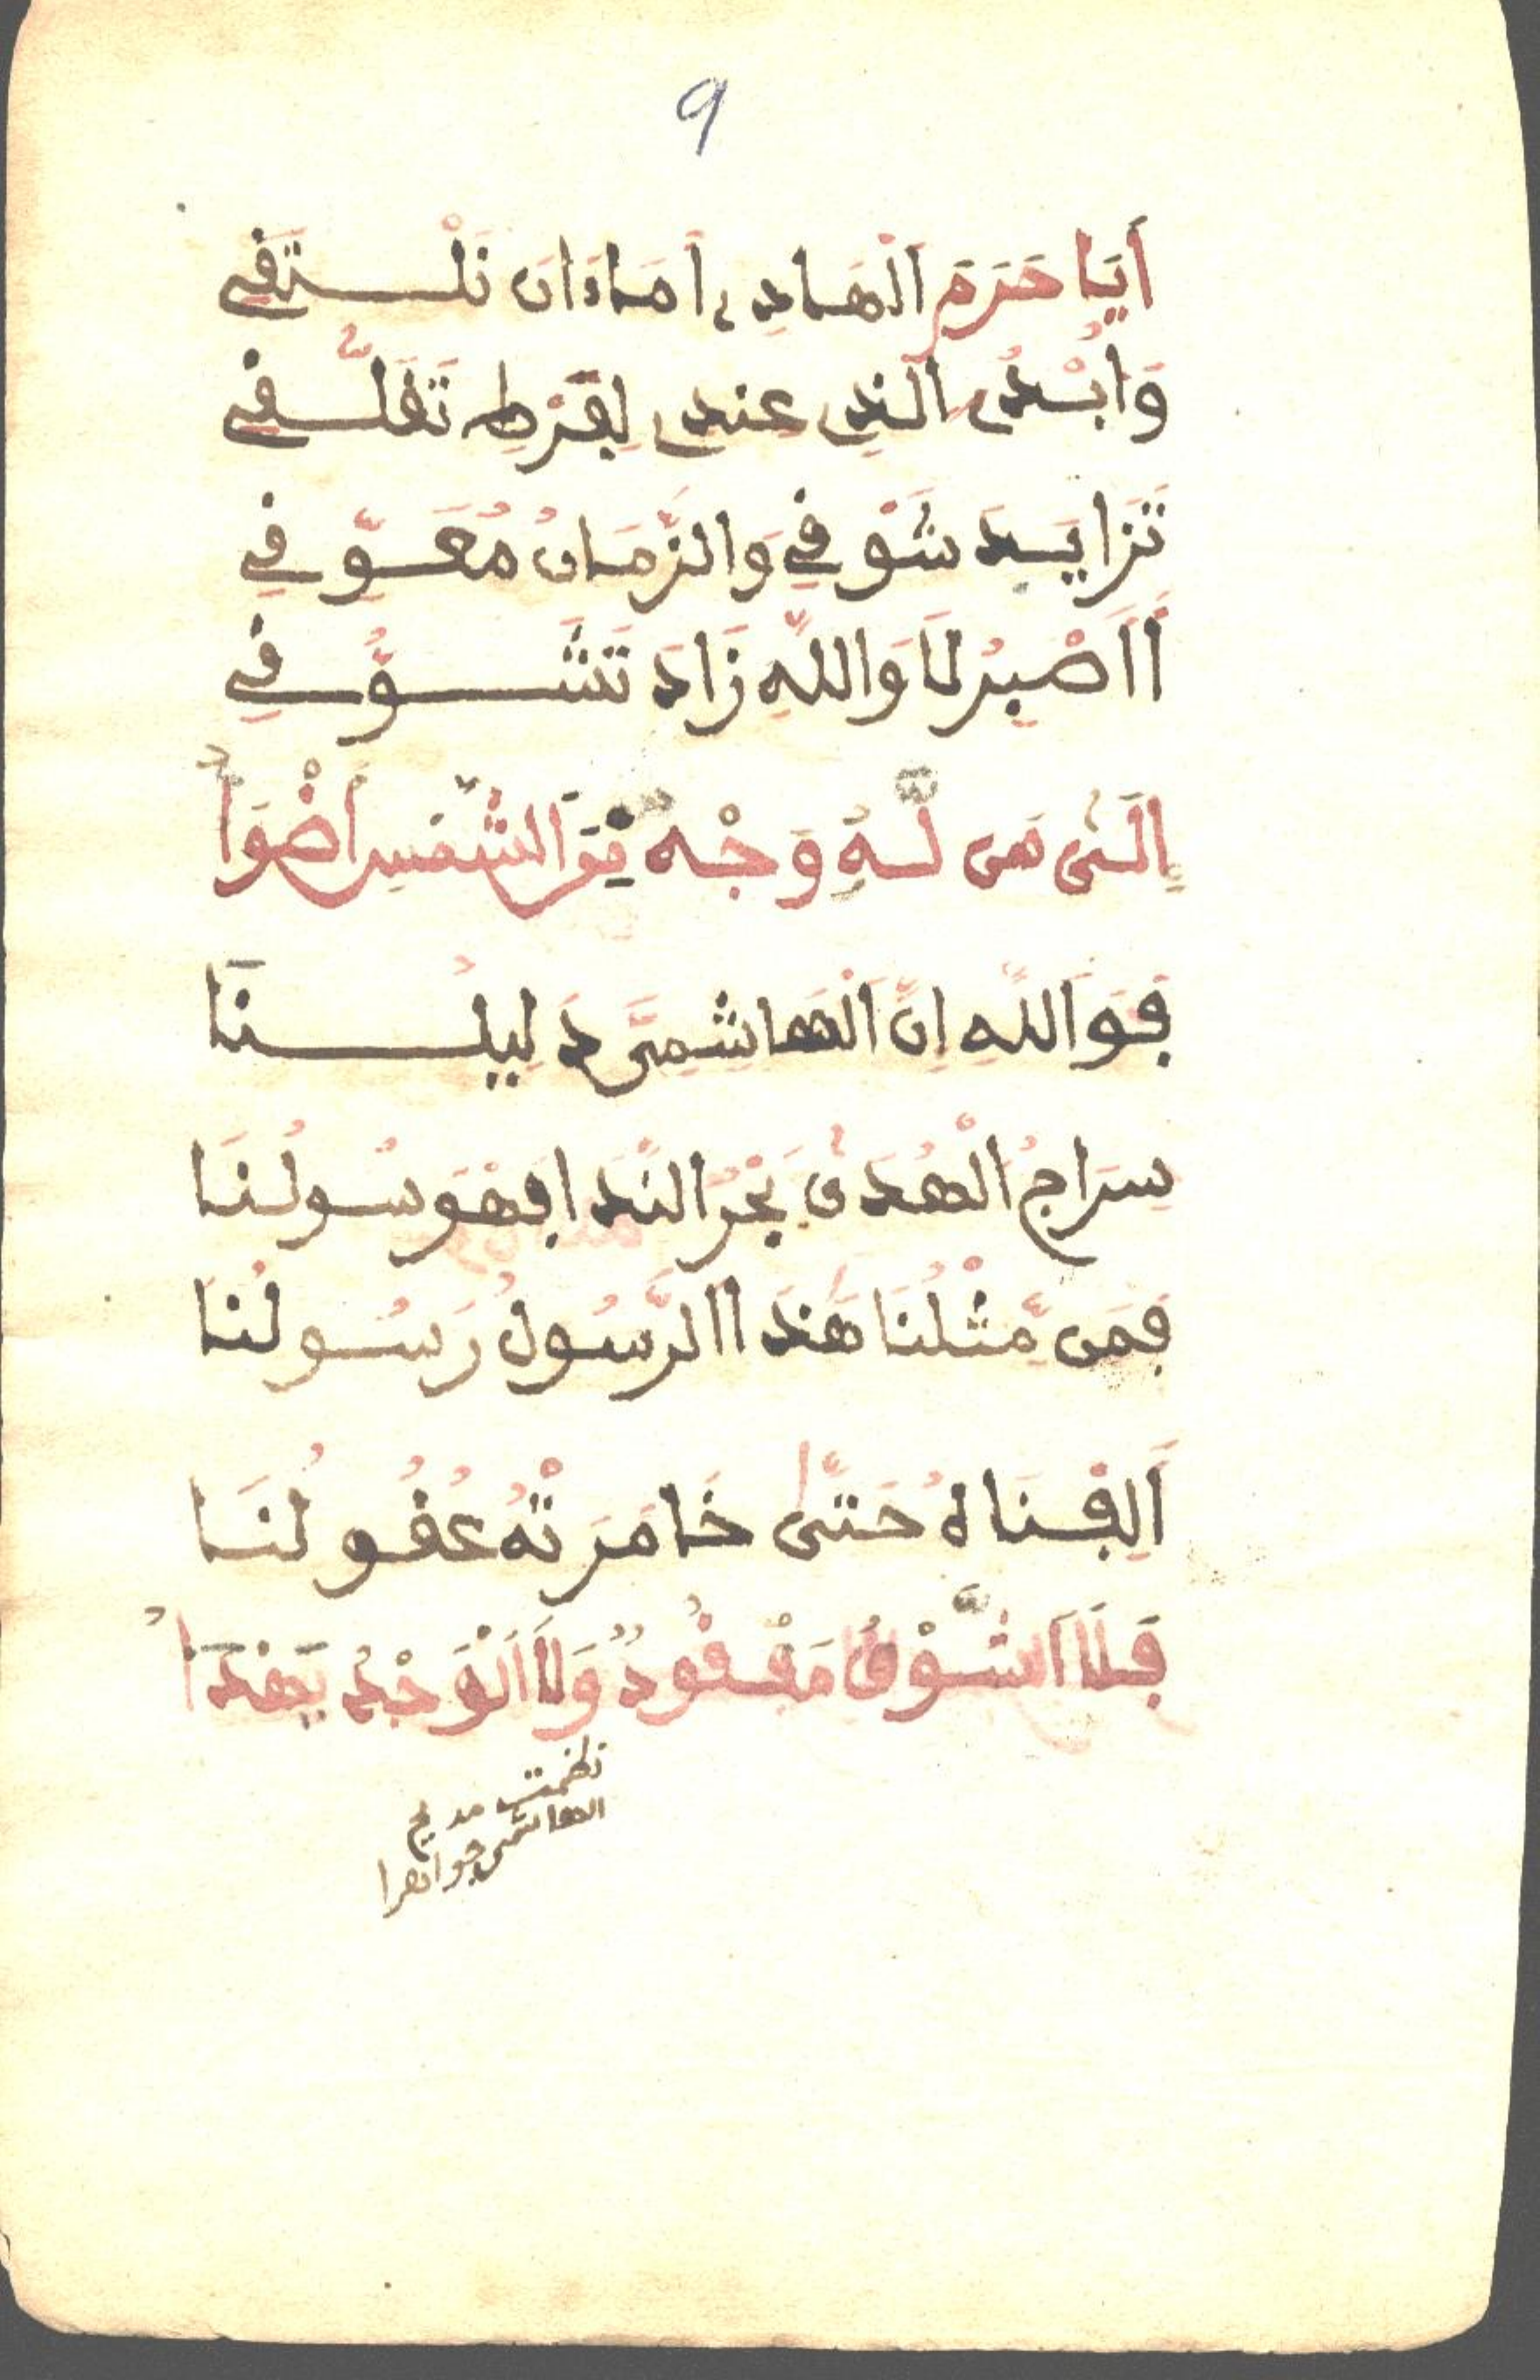 9
أَيَا حَرَمَ الْهَادِي أَمَاءَانَ نَلْتَقِي
وَأُبْدِى الَّذِى عِنْدِى لِفَرْطِ تَقَلُّقِي
تَزَايَدَ شَوْقِي وَالزَّمَانُ مُعَوِّقِي
أَأَصْبِرُ لَا وَاللَّهِ زَادَ تَشَوُّقِي
إِلَى مَن لَّهُ وَجْهٌ مِنَ الشَّمْسِ أَضْوَأُ
فَوَاللَّهِ إِنَّ الْهَاشِمِىَّ دَلِيلُنَا
سِرَاجُ الْهُدَى بَحْرُ النَّدَا فَهْوَ سُولُنَا
فَمَن مِّثْلُنَا هَذَا الرَّسُولُ رَسُولُنَا
أَلِفْنَاهُ حَتَّى خَامَرَتْهُ عُقُولُنَا
فَلَا الشَّوْقُ مَفْقُودٌ وَلَا الْوَجْدُ يَهْدَأُ
نظمت مديح
الهاشمى جواهرا